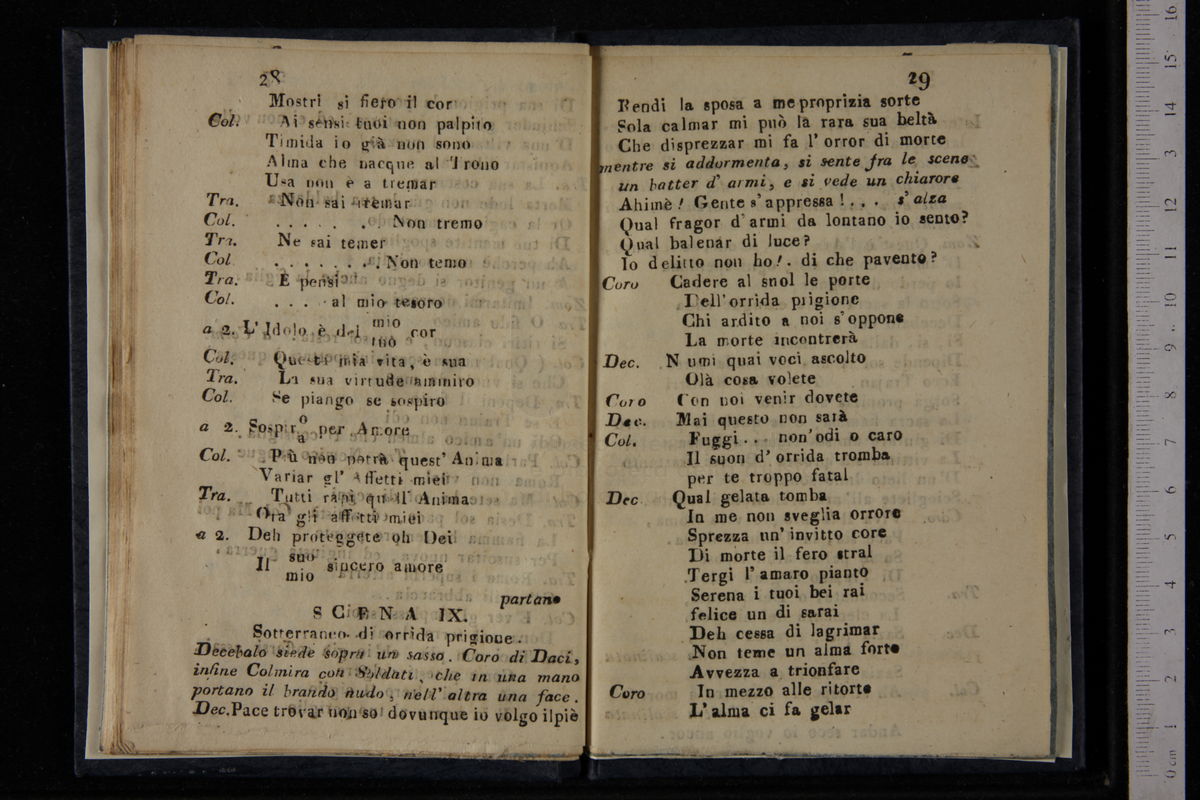 28
Mostri si fiero il cor
Col. Ai sensi tuoi non palpito
Timida io già non sono
Alma che nacque al Trono
Usa non è a tremar
Tra. Non sai tremar
Col. . . . . . . . Non tremo
Tra. Ne sai temer
Col. . . . . . . . . Non temo
Tra. E pensi
Col. . . . . al mio tesoro
a 2. L'Idolo è del mio cor
tuo
Col. Questi mia vita, è sua
Tra. La sua virtude ammiro
Col. Se piango se sospiro
a 2. Sospiro per Amore
a
Col. Più non potrà quest' Anima
Variar gl' Affetti miei
Tra. Tutti rapi quell' Anima
Ora gli affetti miei
a 2. Deh proteggete oh Dei
Il suo sincero amore
mio
partano
SCENA IX.
Sotterraneo di orrida prigione.
Decebalo siede sopra un sasso. Coro di Daci,
infine Colmira con Soldati, che in una mano
portano il brando nudo, nell' altra una face.
Dec. Pace trovar non so dovunque io volgo il piè
29
Rendi la sposa a me proprizia sorte
Sola calmar mi può la rara sua beltà
Che disprezzar mi fa l'orror di morte
mentre si addormenta, si sente fra le scene
un batter d' armi, e si vede un chiarore
Ahimè! Gente s'appressa!... s'alza
Qual fragor d'armi da lontano io sento?
Qual balenar di luce?
Io delitto non ho!. di che pavento?
Coro Cadere al snol le porte
Dell'orrida prigione
Chi ardito a noi s'oppone
La morte incontrerà
Dec. Numi quai voci ascolto
Olà cosa volete
Coro Con noi venir dovete
Dec. Mai questo non sarà
Col. Fuggi... non'odi o caro
Il suon d'orrida tromba
per te troppo fatal
Dec Qual gelata tomba
In me non sveglia orrore
Sprezza un'invitto core
Di morte il fero stral
Tergi l'amaro pianto
Serena i tuoi bei rai
felice un di sarai
Deh cessa di lagrimar
Non teme un alma forte
Avvezza a trionfare
Coro In mezzo alle ritorte
L'alma ci fa gelar